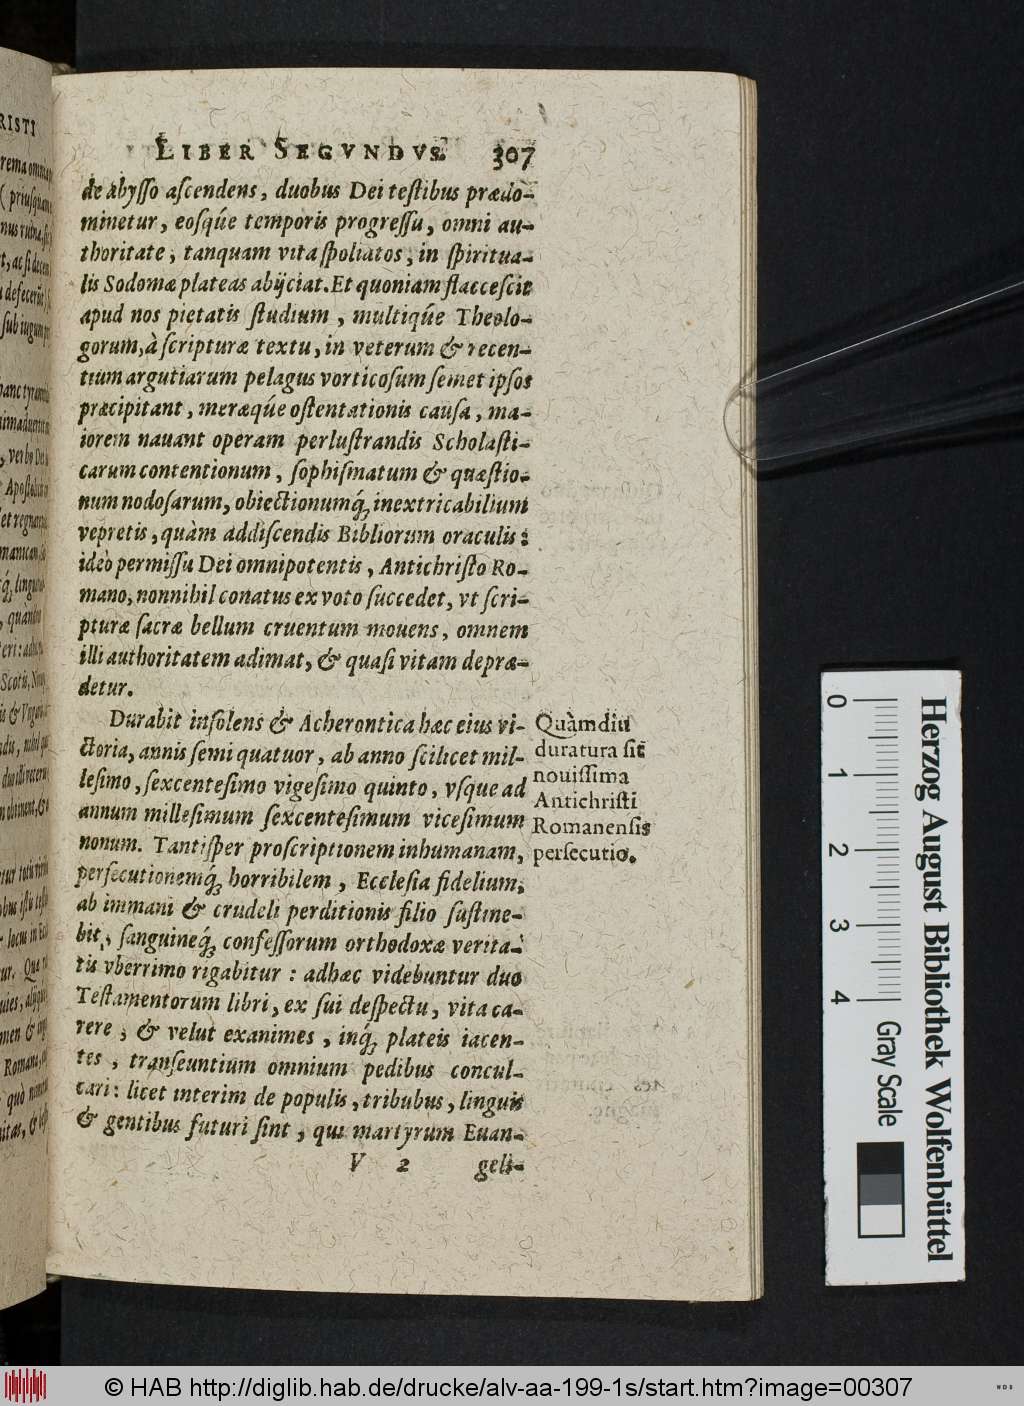 LIBER SEGVNDVS. 307
de abyſſo aſcendens, duobus Dei teſtibus prædo-
minetur, eoſq́ue temporis progreſſu, omni au-
thoritate, tanquam vita ſpoliatos, in ſpiritua-
lis Sodomæ plateas abijciat. Et quoniam flacceſcit
apud nos pietatis ſtudium, multiq́ue Theolo-
gorum, à ſcripturæ textu, in veterum & recen-
tium argutiarum pelagus vorticoſum ſemet ipſos
præcipitant, meræq́ue oſtentationis cauſa, ma-
iorem nauant operam perluſtrandis Scholaſti-
carum contentionum, ſophiſmatum & quæſtio-
num nodoſarum, obiectionumq́; inextricabilium
vepretis, quàm addiſcendis Bibliorum oraculis:
ideò permiſſu Dei omnipotentis, Antichriſto Ro-
mano, nonnihil conatus ex voto ſuccedet, vt ſcri-
pturæ ſacræ bellum cruentum mouens, omnem
illi authoritatem adimat, & quaſi vitam deprae-
detur.
Durabit inſolens & Acherontica hæc eius vi-
ctoria, annis ſemi quatuor, ab anno ſcilicet mil-
leſimo, ſexcenteſimo vigeſimo quinto, vſque ad
annum milleſimum ſexcenteſimum viceſimum
nonum. Tantiſper proſcriptionem inhumanam,
perſecutionemq́; horribilem, Eccleſia fidelium,
ab immani & crudeli perditionis filio ſuſtine-
bit, ſanguineq́; confeſſorum orthodoxæ verita-
tis vberrimo rigabitur: adhæc videbuntur duo
Teſtamentorum libri, ex ſui deſpectu, vita ca-
rere, & velut exanimes, inq́; plateis iacen-
tes, tranſeuntium omnium pedibus concul-
cari: licet interim de populis, tribubus, linguis
& gentibus futuri ſint, qui martyrum Euan-
V 2 geli-
Quàmdiu
duratura ſit
nouiſſima
Antichriſti
Romanenſis
perſecutio.
0 1 2 3 4
Gray Scale
Herzog August Bibliothek Wolfenbüttel
© HAB http://diglib.hab.de/drucke/alv-aa-199-1s/start.htm?image=00307